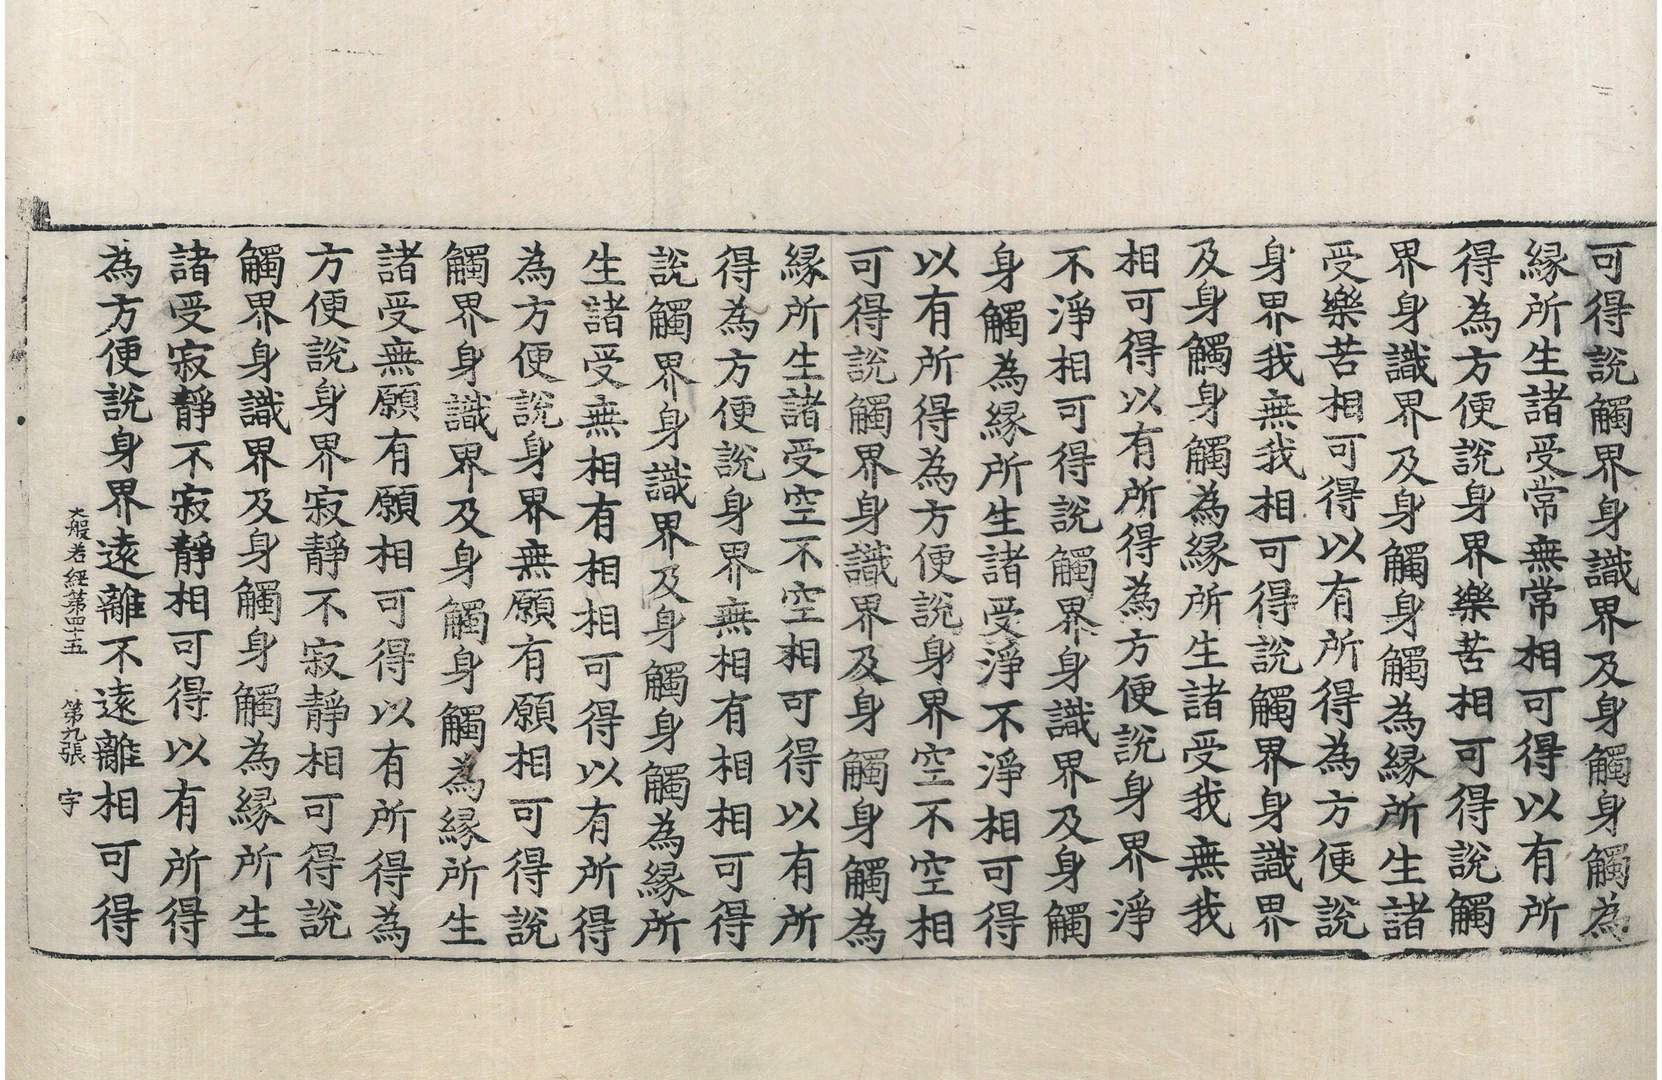 可得說觸界身識界及身觸身觸為
緣所生諸受常無常相可得以有所
得為方便說身界樂苦相可得說觸
界身識界及身觸身觸為緣所生諸
受樂苦相可得以有所得為方便說
身界我無我相可得說觸界身識界
及身觸身觸為緣所生諸受我無我
相可得以有所得為方便說身界淨
不淨相可得說觸界身識界及身觸
身觸為緣所生諸受淨不淨相可得
以有所得為方便說身界空不空相
可得說觸界身識界及身觸身觸為
緣所生諸受空不空相可得以有所
得為方便說身界無相有相相可得
說觸界身識界及身觸身觸為緣所
生諸受無相有相相可得以有所得
為方便說身界無願有願相可得說
觸界身識界及身觸身觸為緣所生
諸受無願有願相可得以有所得為
方便說身界寂靜不寂靜相可得說
觸界身識界及身觸身觸為緣所生
諸受寂靜不寂靜相可得以有所得
為方便說身界遠離不遠離相可得
大般若經第四十五 第九張 宇